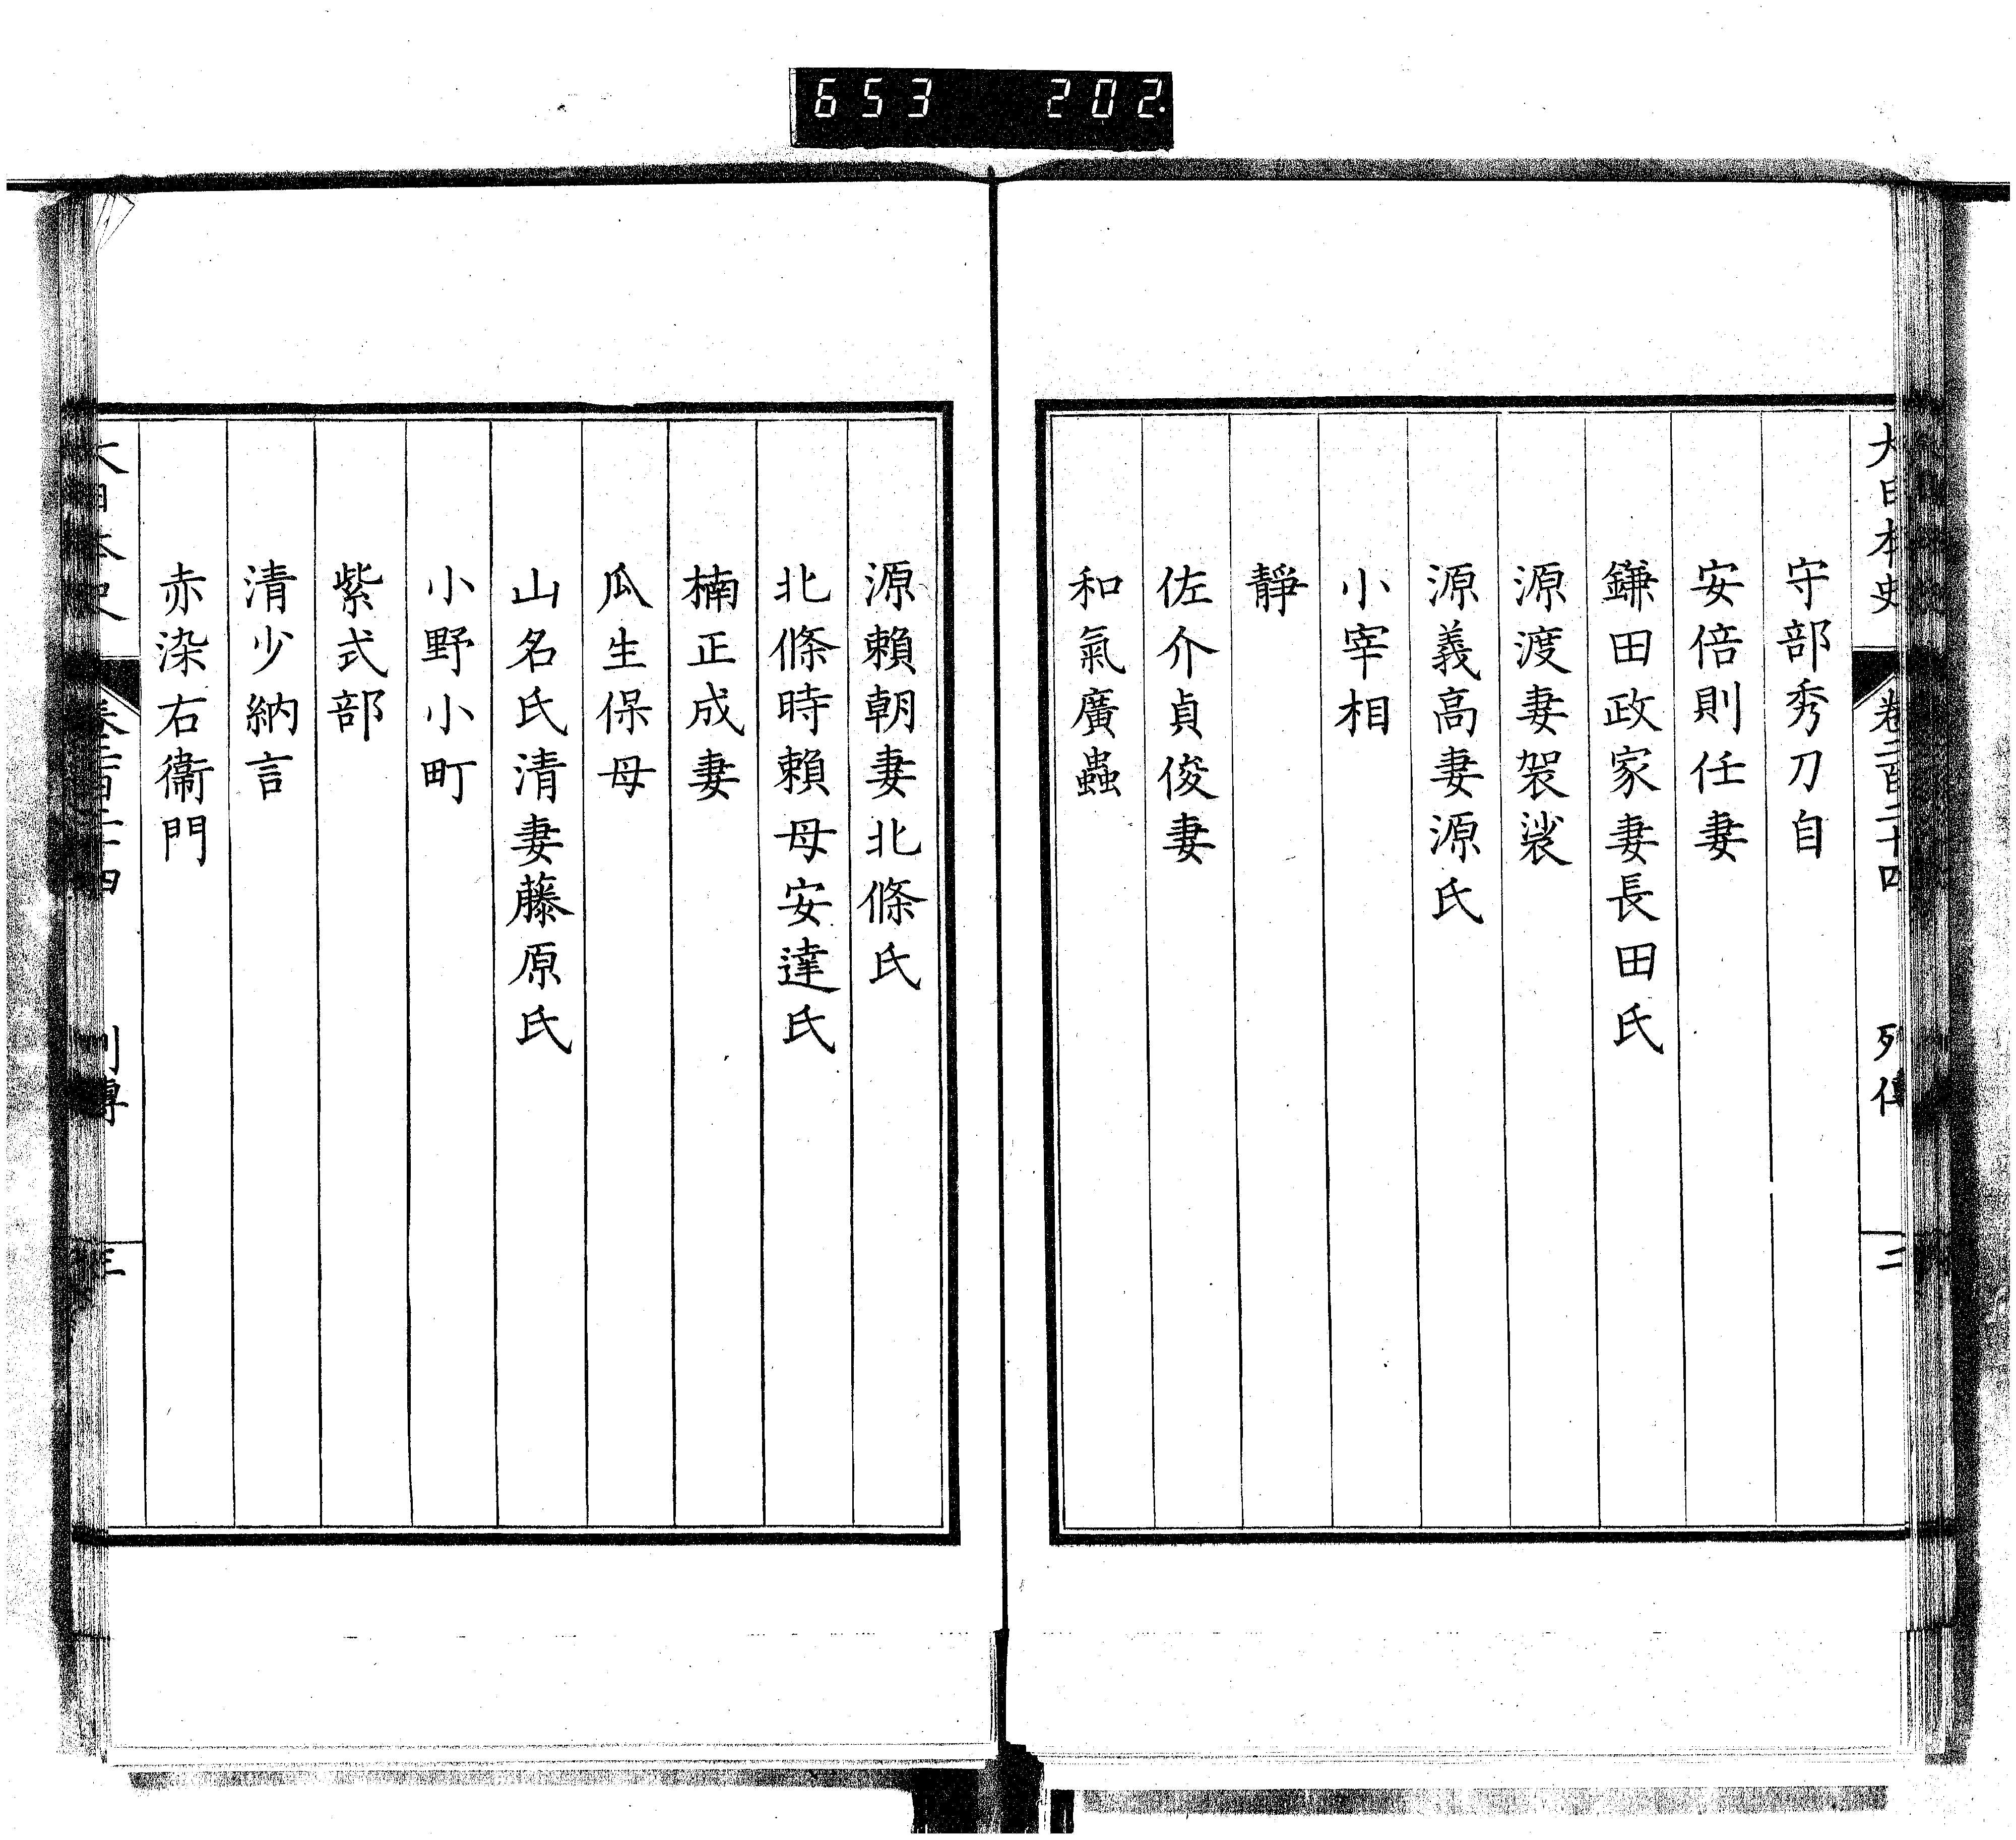 653 202
大日本史 卷二百二十四 列傳 二
守部秀刀自
安倍則任妻
鎌田政家妻長田氏
源渡妻袈裟
源義高妻源氏
小宰相
靜
佐介貞俊妻
和氣廣蟲
源賴朝妻北條氏
北條時賴母安達氏
楠正成妻
瓜生保母
山名氏清妻藤原氏
小野小町
紫式部
清少納言
赤染右衞門
大日本史 卷二百二十四 列傳 三